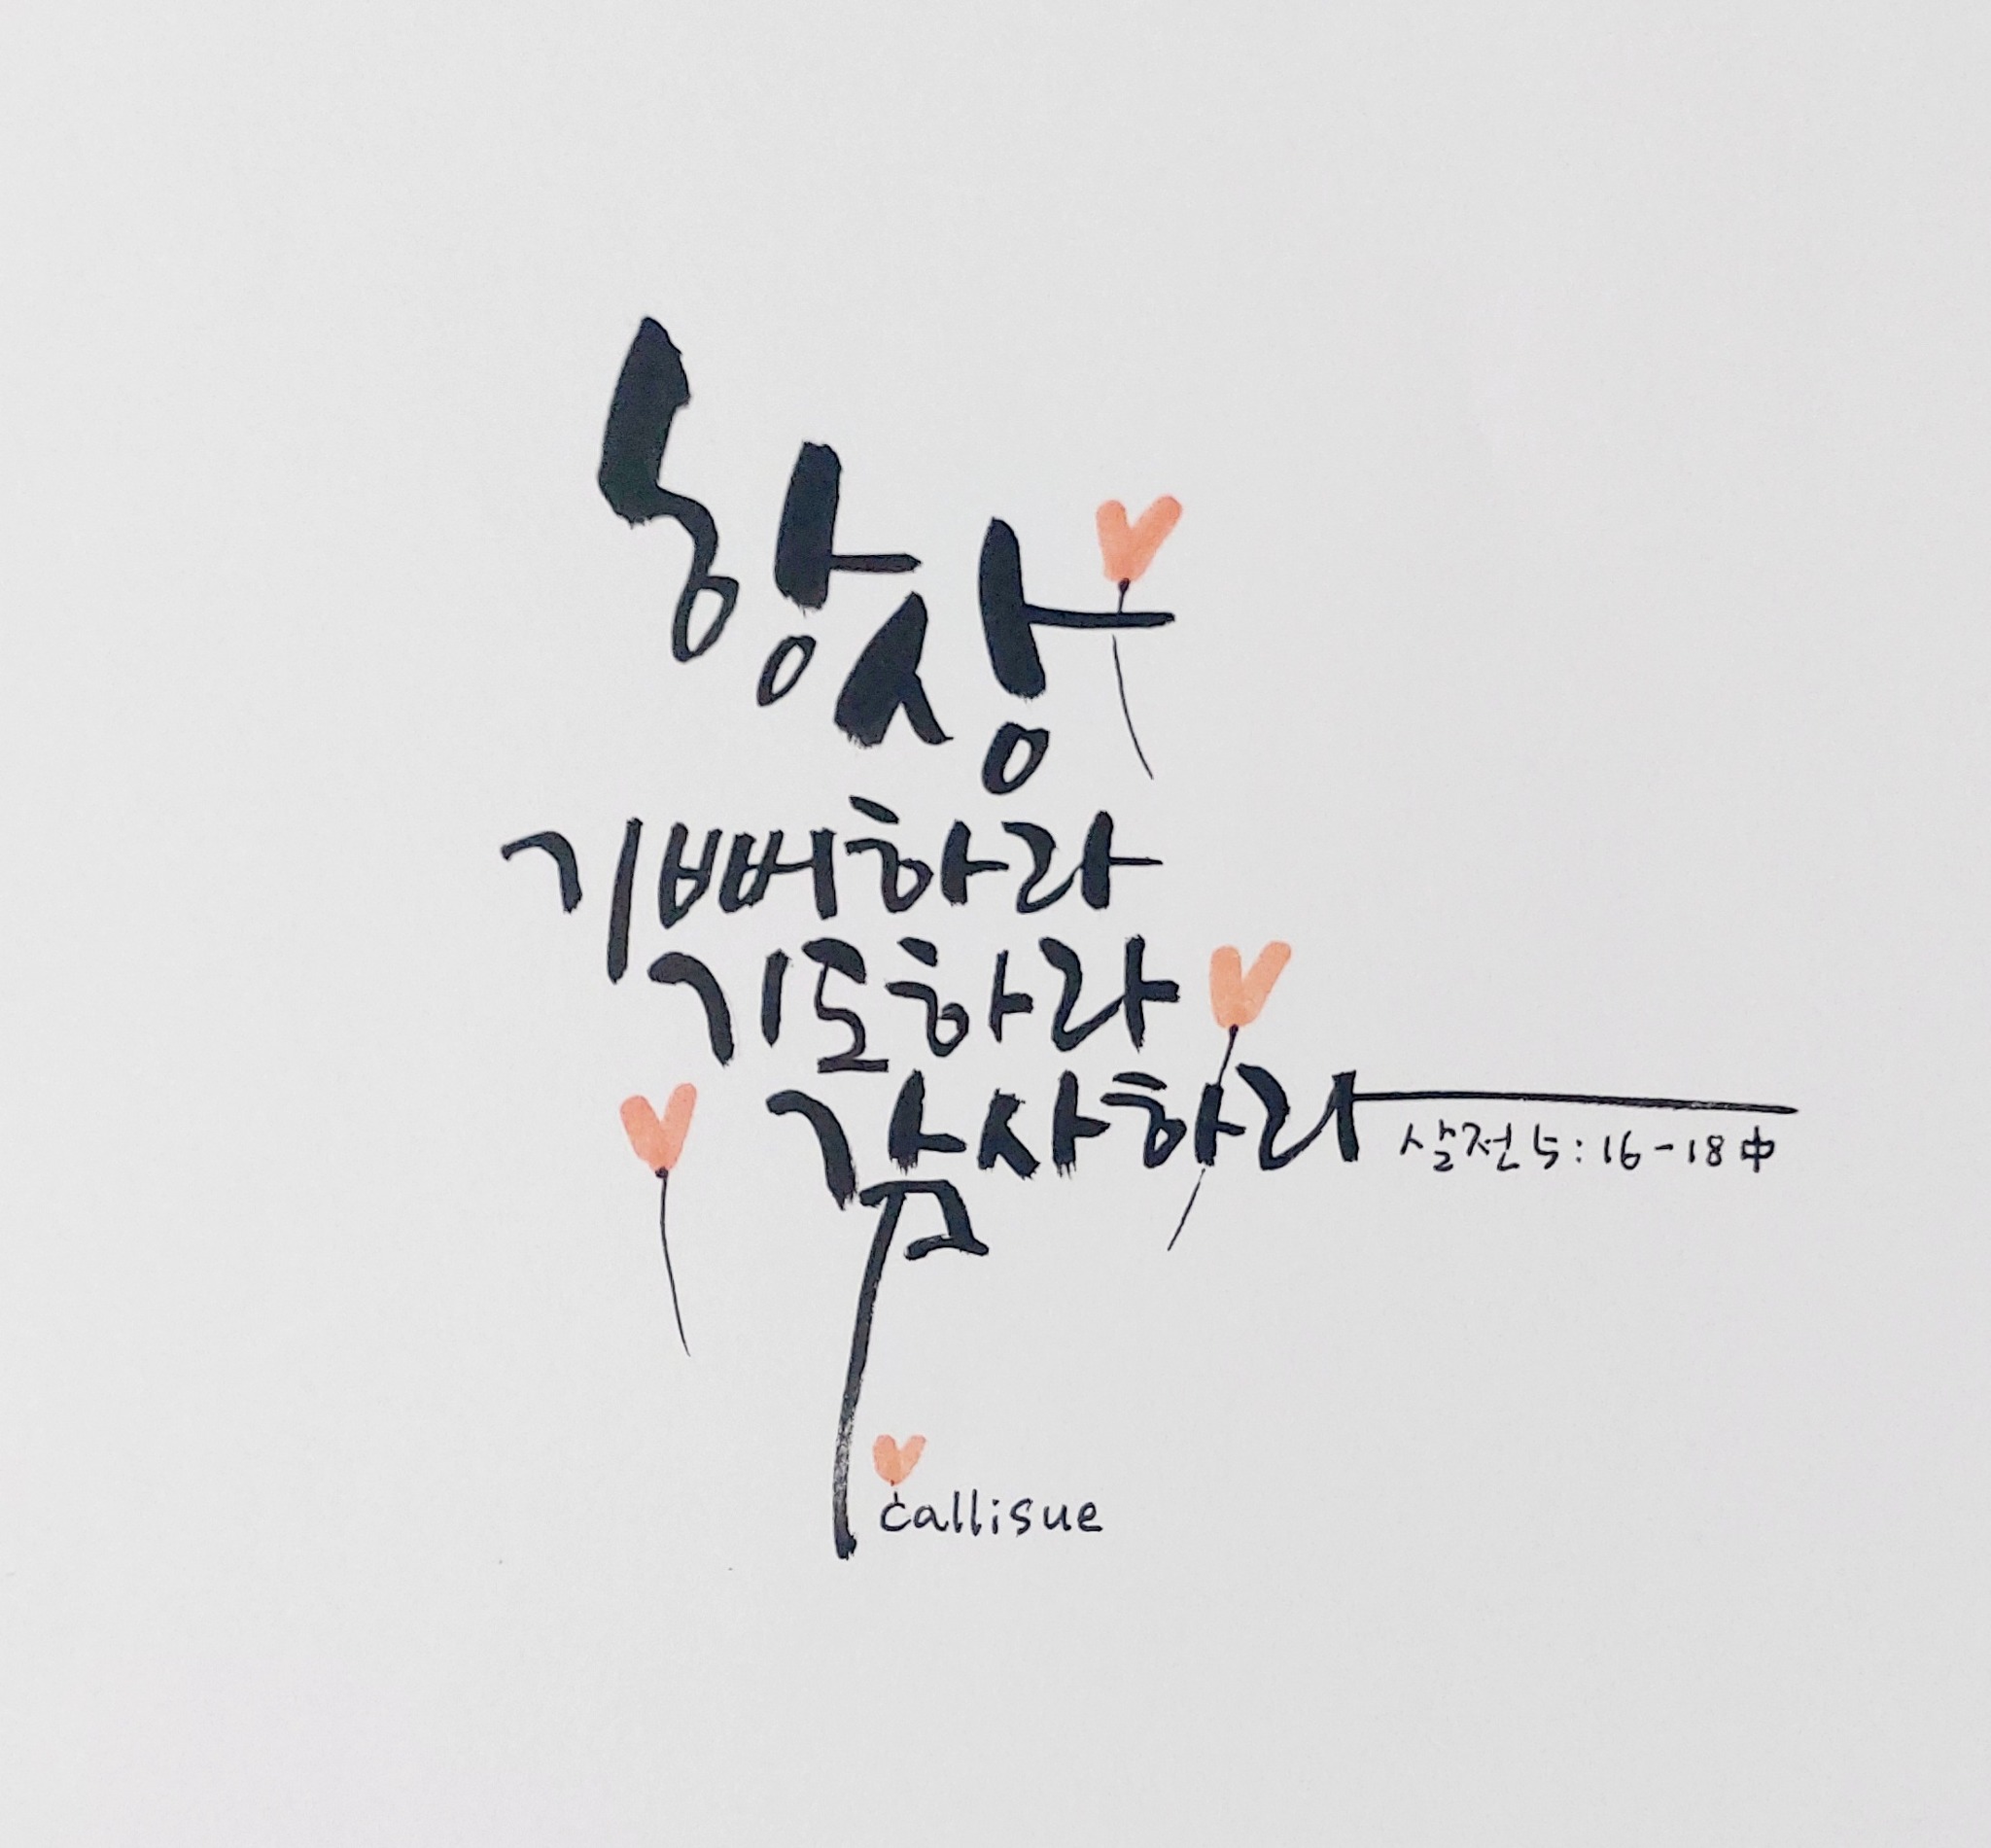 항상
기뻐하라
기도하라
감사하라
살전 5:16-18 中
callisue